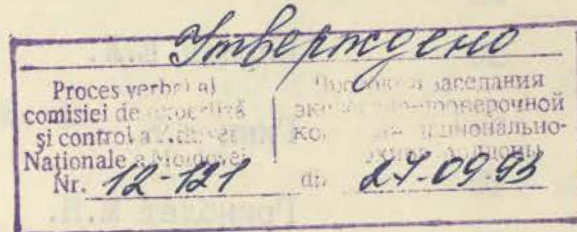 Утверждено
Proces verbal al
comisiei de expertiză
şi control a
Naţionale a Moldovei
Nr. 12-121
заседания
проверочной
национально-
din 27.09.93